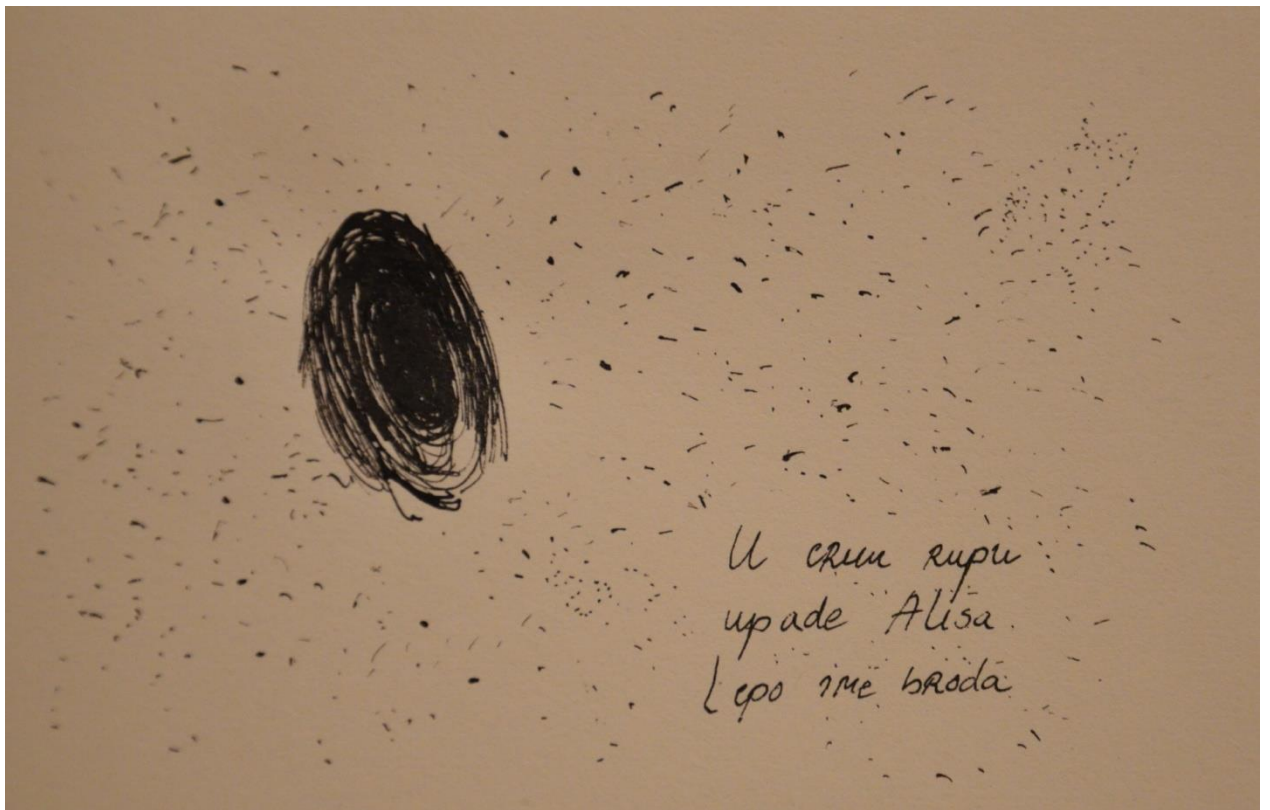 U crnu rupu
upade Alisa.
Lepo ime broda